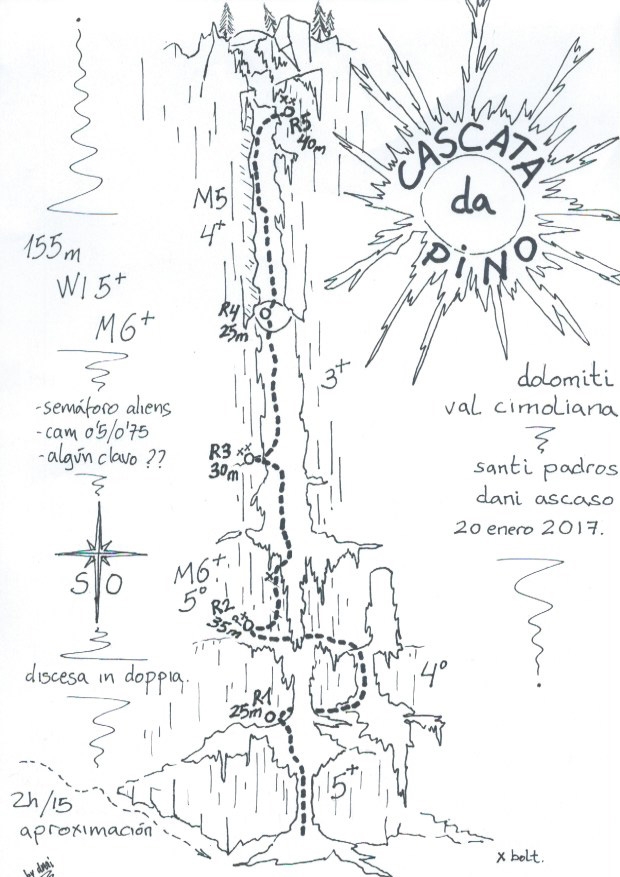 CASCATA
da
PiNO
155m
WI 5+
M6+
-semáforo aliens
-cam 0'5/0'75
-algún clavo ??
S O
discesa in doppia.
2h/15
aproximación
by dani
dolomiti
val cimoliana
santi padros
dani ascaso
20 enero 2017.
x bolt.
xx
R5
40m
M5
4+
R4
25m
3+
R3 xx
30m
M6+
5º
x
R2
35m
4º
R1
25m
5+